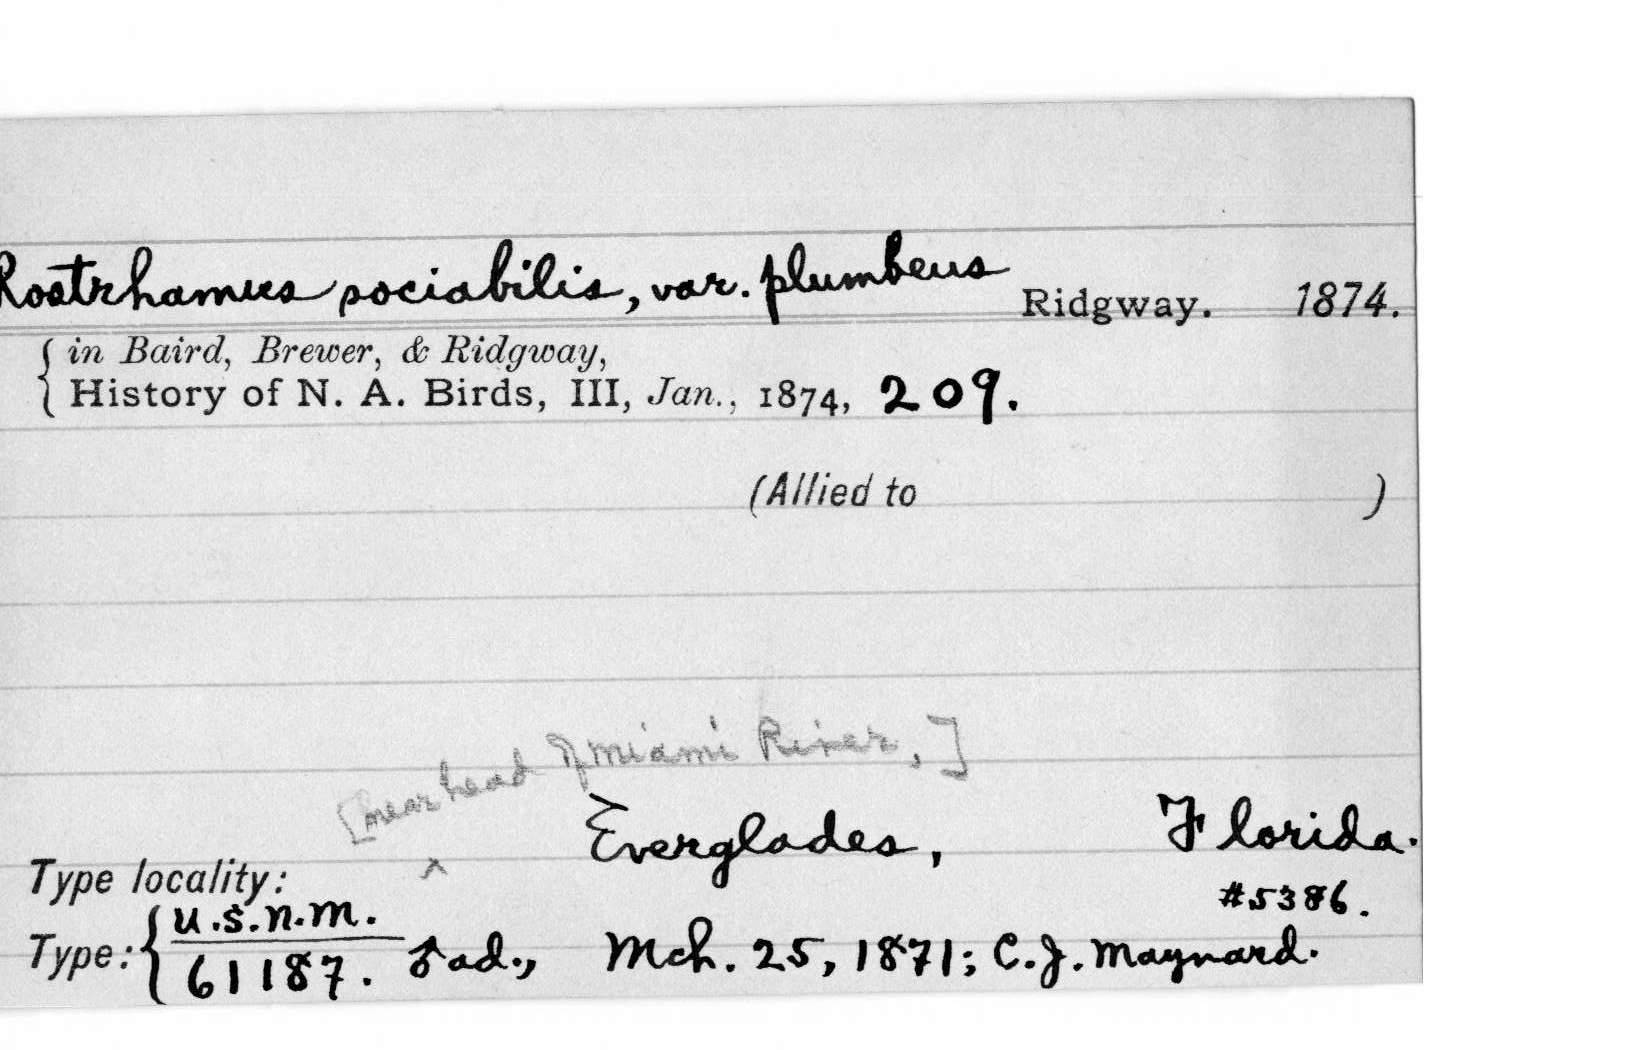 Rostrhamus sociabilis, var. plumbeus Ridgway. 1874.
in Baird, Brewer, & Ridgway,
History of N. A. Birds, III, Jan., 1874, 209.
(Allied to )
[near head of Miami River,]
Type locality: ^ Everglades, Florida.
#5386.
Type: U.S.N.M.
61187. ♂ ad., Mch. 25, 1871; C.J. Maynard.